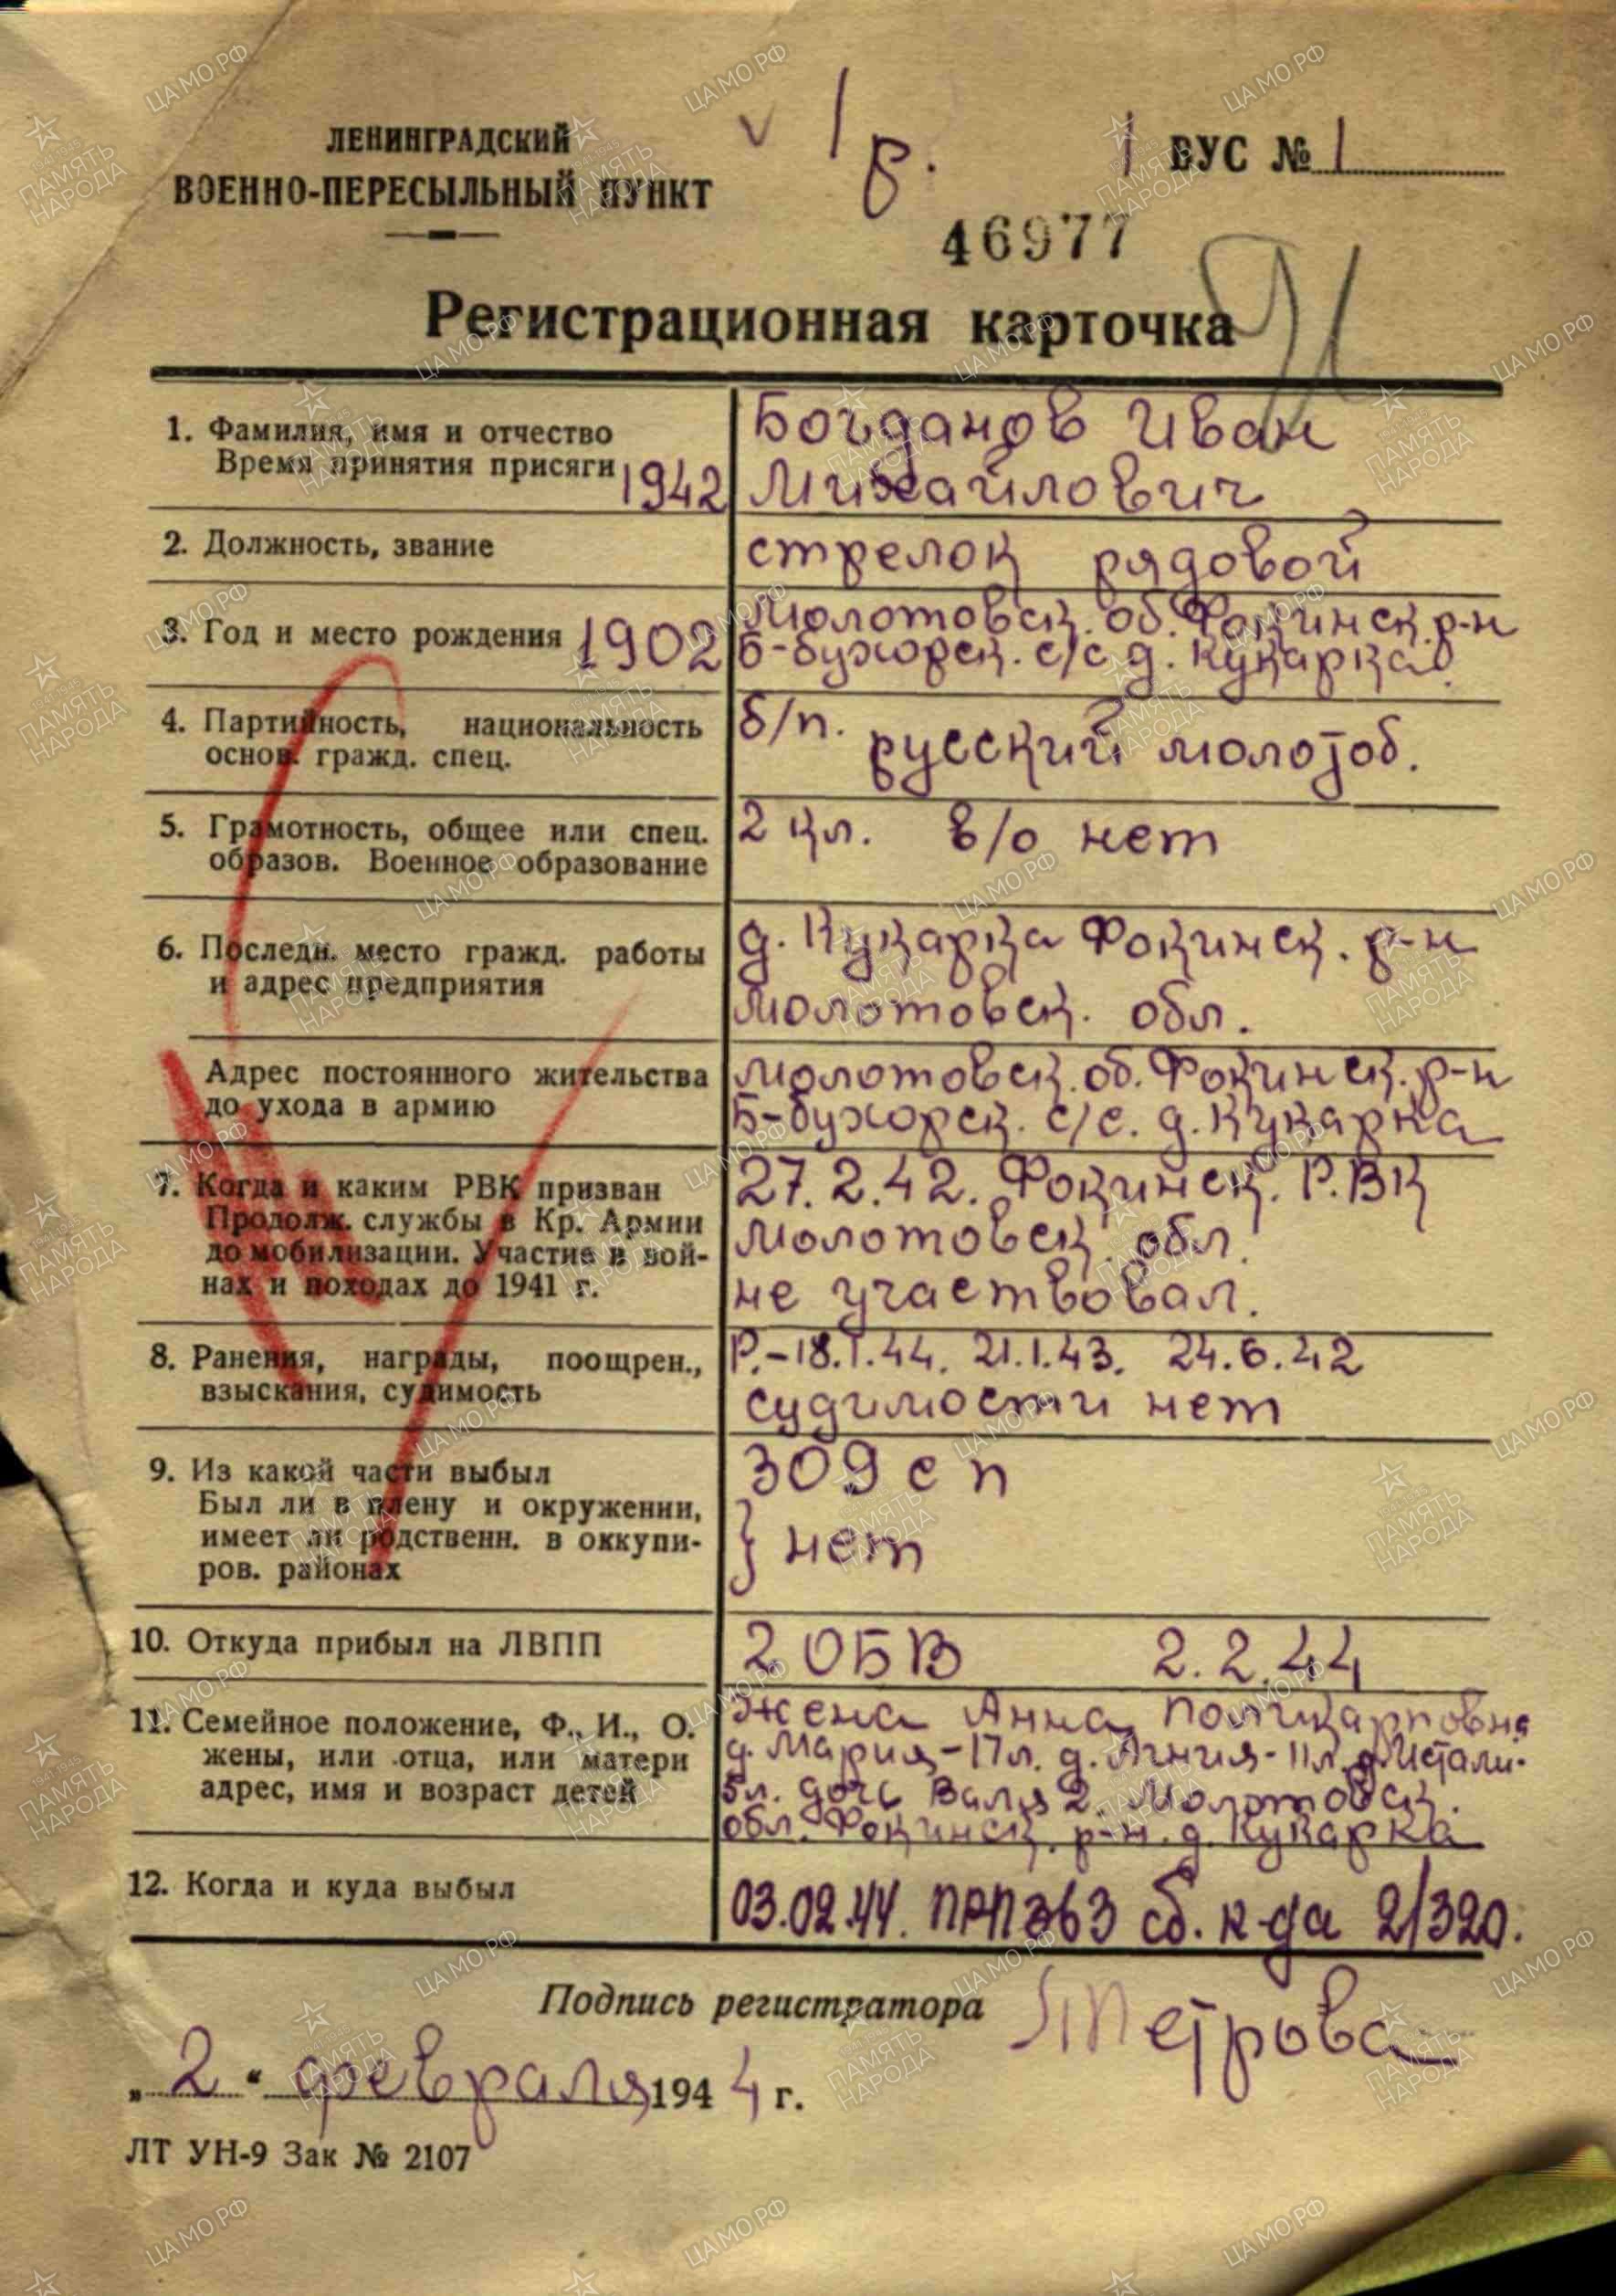 ЛЕНИНГРАДСКИЙ
ВОЕННО-ПЕРЕСЫЛЬНЫЙ ПУНКТ
1 р.
1 ВУС № 1
46977
Регистрационная карточка
1. Фамилия, имя и отчество
Время принятия присяги 1942
Богданов Иван
Михайлович
2. Должность, звание
стрелок рядовой
3. Год и место рождения 1902
Молотовск. об. Фокинск. р-н
Б-бухорск. с/с д. Кукарка
4. Партийность, национальность
основ. гражд. спец.
б/п.
русский молотоб.
5. Грамотность, общее или спец.
образов. Военное образование
2 кл. в/о нет
6. Последн. место гражд. работы
и адрес предприятия
д. Кукарка Фокинск. р-н
Молотовск. обл.
Адрес постоянного жительства
до ухода в армию
Молотовск. об. Фокинск. р-н
Б-бухорск. с/с. д. Кукарка
7. Когда и каким РВК призван
Продолж. службы в Кр. Армии
до мобилизации. Участие в вой-
нах и походах до 1941 г.
27.2.42. Фокинск. Р.ВК
Молотовск. обл.
не участвовал.
8. Ранения, награды, поощрен.,
взыскания, судимость
Р.-18.1.44. 21.1.43. 24.6.42
судимости нет
9. Из какой части выбыл
Был ли в плену и окружении,
имеет ли родственн. в оккупи-
ров. районах
309 сп
} нет
10. Откуда прибыл на ЛВПП
2 ОБВ 2.2.44
11. Семейное положение, Ф., И., О.
жены, или отца, или матери
адрес, имя и возраст детей
жена Анна Поликарповна
д. Мария-17л. д. Агния-11л.
5л. дочь Валя 2. Молотовск.
обл. Фокинск. р-н. д. Кукарка
12. Когда и куда выбыл
03.02.44. ПРП 363 сб. к-да 2/320.
Подпись регистратора Петрова
„ 2 “ февраля 1944 г.
ЛТ УН-9 Зак № 2107